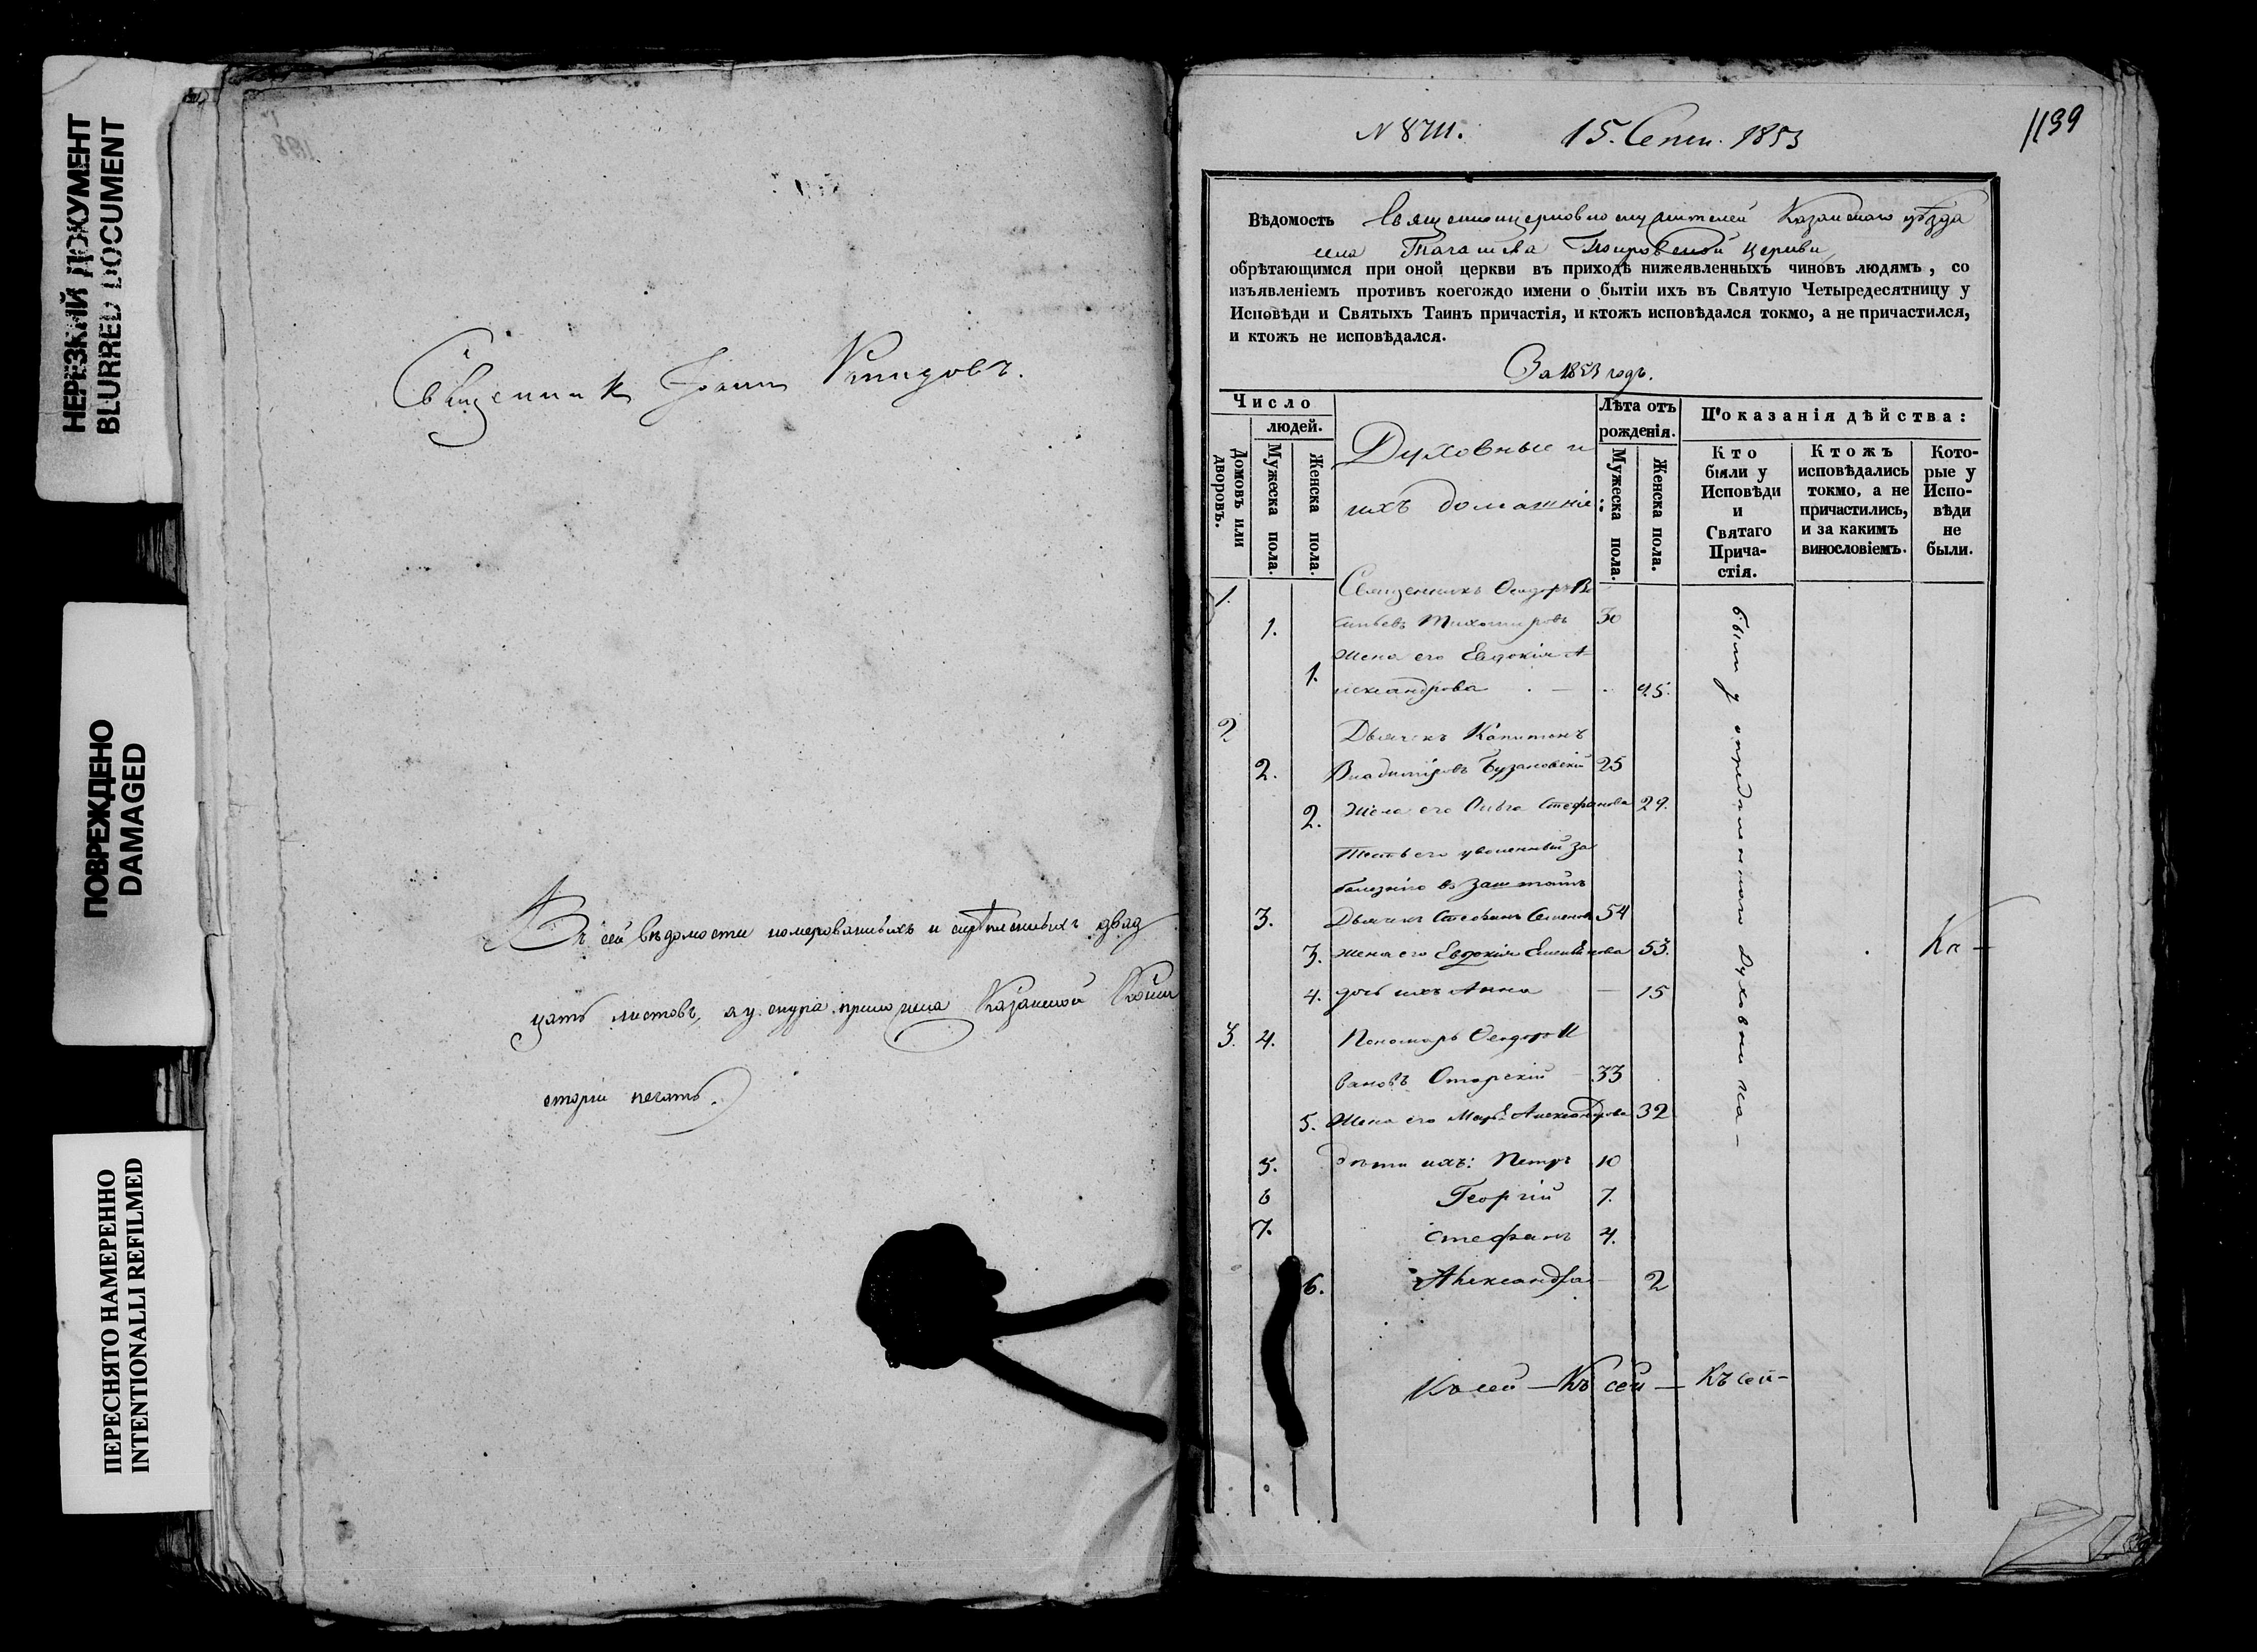 НЕРЕЗКИЙ ДОКУМЕНТ
BLURRED DOCUMENT
ПОВРЕЖДЕНО
DAMAGED
ПЕРЕСНЯТО НАМЕРЕННО
INTENTIONALLI REFILMED
Священникъ Іоаннъ
Въ сей вѣдомости номерованныхъ и скрѣпленныхъ двад
цать листовъ, а у снура приложена Казанской Конси
сторіи печать.
N 8711.
15. Сент. 1853
1199
Вѣдомость Священноцерковнослужителей Казанскаго уѣзда
села Тагашева Покровской церкви
обрѣтающимся при оной церкви въ приходѣ нижеявленныхъ чиновъ людямъ, со
изъявленіемъ противъ коегождо имени о бытіи ихъ въ Святую Четыредесятницу у
Исповѣди и Святыхъ Таинъ причастія, и ктожъ исповѣдался токмо, а не причастился,
и ктожъ не исповѣдался.
За 1853 годъ.
Число
людей.
Домовъ или дворовъ.
Мужеска пола.
Женска пола.
Духовные и
ихъ домашніе
Лѣта отъ
рожденія.
Мужеска пола.
Женска пола.
Показанія дѣйства:
Кто
были у
Исповѣди
и
Святаго
Прича-
стія.
Ктожъ
исповѣдались
токмо, а не
причастились,
и за какимъ
винословіемъ.
Кото-
рые у
Испо-
вѣди
не
были.
1. Священникъ Ѳеодоръ Ва
1. сильевъ Тихомировъ 30
Жена его Евдокія А-
1. лександрова 25.
2 Дьячекъ Капитонъ
2. Владиміровъ Бузановскій 25
2. Жена его Ольга Стефанова 29.
Тесть его уволенный за
болезнію въ заштатъ
3. Дьячекъ Стефанъ Семеновъ 54
3. Жена его Евдокія 53.
4. дочь ихъ Анна — 15
3. 4. Пономарь Ѳеодоръ И
вановъ Отарскій 33
5. Жена его Марья Александрова 32
5. дѣти ихъ: Петръ 10
6 Георгій 7.
7. Стефанъ 4.
6. Александра — 2
были у
духовника —
Къ —
Къ сей — Къ сей — Къ сей —